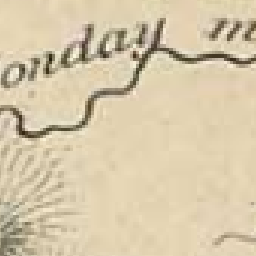 onday m